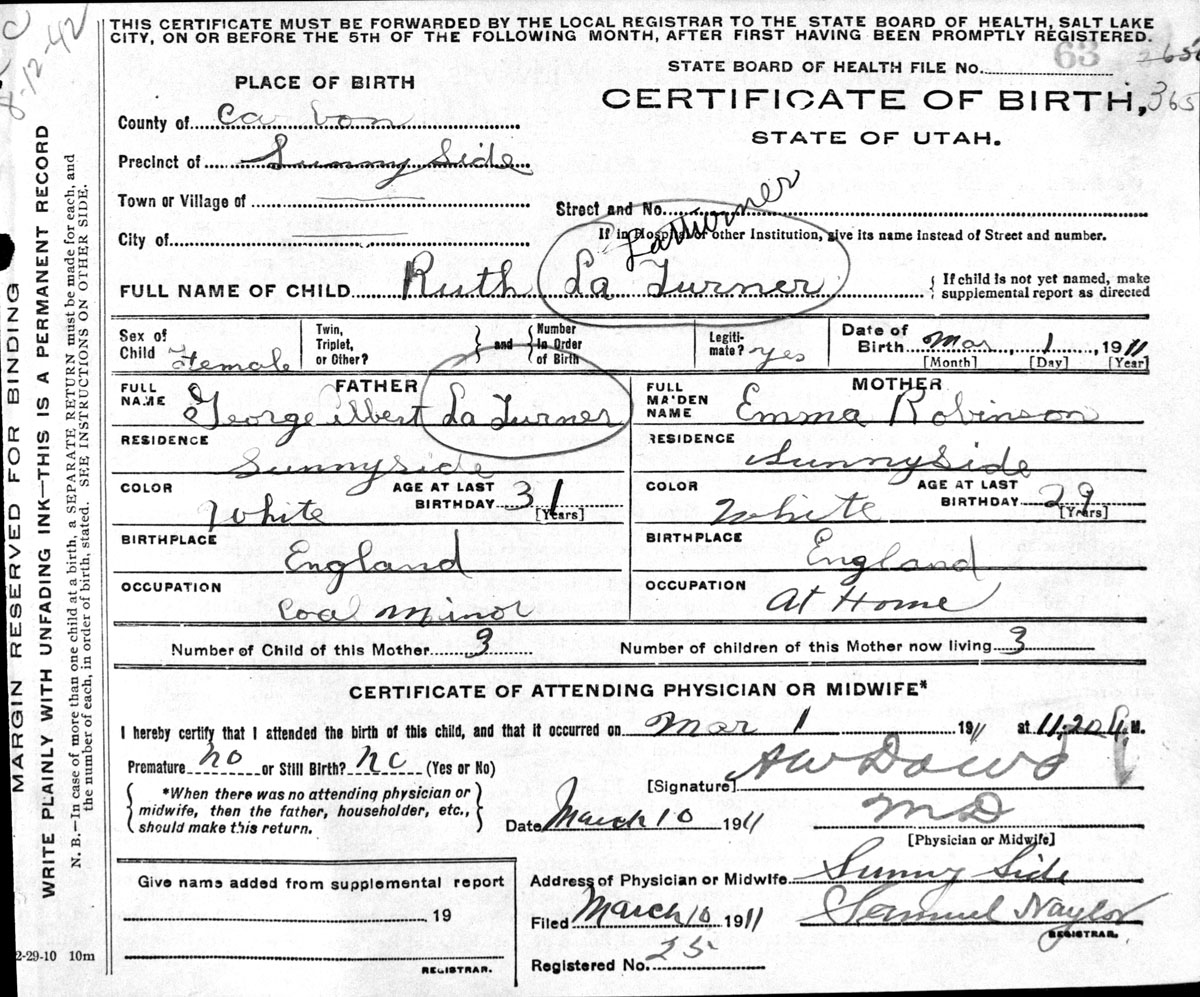 THIS CERTIFICATE MUST BE FORWARDED BY THE LOCAL REGISTRAR TO THE STATE BOARD OF HEALTH, SALT LAKE
CITY, ON OR BEFORE THE 5TH OF THE FOLLOWING MONTH, AFTER FIRST HAVING BEEN PROMPTLY REGISTERED.
8-12-42
63
365
STATE BOARD OF HEALTH FILE No.
PLACE OF BIRTH
CERTIFICATE OF BIRTH,
STATE OF UTAH.
County of Carbon
Precinct of Sunny Side
Town or Village of
Street and No.
City of
If in Hospital or other Institution, give its name instead of Street and number.
FULL NAME OF CHILD Ruth La Turner
If child is not yet named, make
supplemental report as directed
Sex of
Child Female
Twin,
Triplet,
or Other?
and
Number
in Order
of Birth
Legiti-
mate? yes
Date of
Birth Mar 1, 1911
[Month] [Day] [Year]
FULL
NAME
FATHER
George Albert La Turner
RESIDENCE
Sunnyside
COLOR
White
AGE AT LAST
BIRTHDAY 31
[Years]
BIRTHPLACE
England
OCCUPATION
Coal Minor
FULL
MAIDEN
NAME
MOTHER
Emma Robinson
RESIDENCE
Sunnyside
COLOR
White
AGE AT LAST
BIRTHDAY 29
[Years]
BIRTHPLACE
England
OCCUPATION
At Home
Number of Child of this Mother 3
Number of children of this Mother now living 3
CERTIFICATE OF ATTENDING PHYSICIAN OR MIDWIFE*
I hereby certify that I attended the birth of this child, and that it occurred on Mar 1 1911 at 11:20 M.
Premature no or Still Birth? no (Yes or No)
*When there was no attending physician or
midwife, then the father, householder, etc.,
should make this return.
[Signature] AW Dowd
MD
Date March 10 1911
[Physician or Midwife]
Give name added from supplemental report
19
REGISTRAR.
Address of Physician or Midwife Sunny Side
Filed March 10 1911 Samuel Naylor
REGISTRAR.
Registered No. 25
2-29-10 10m
MARGIN RESERVED FOR BINDING
WRITE PLAINLY WITH UNFADING INK—THIS IS A PERMANENT RECORD
N. B.—In case of more than one child at a birth, a SEPARATE RETURN must be made for each, and
the number of each, in order of birth, stated. SEE INSTRUCTIONS ON OTHER SIDE.